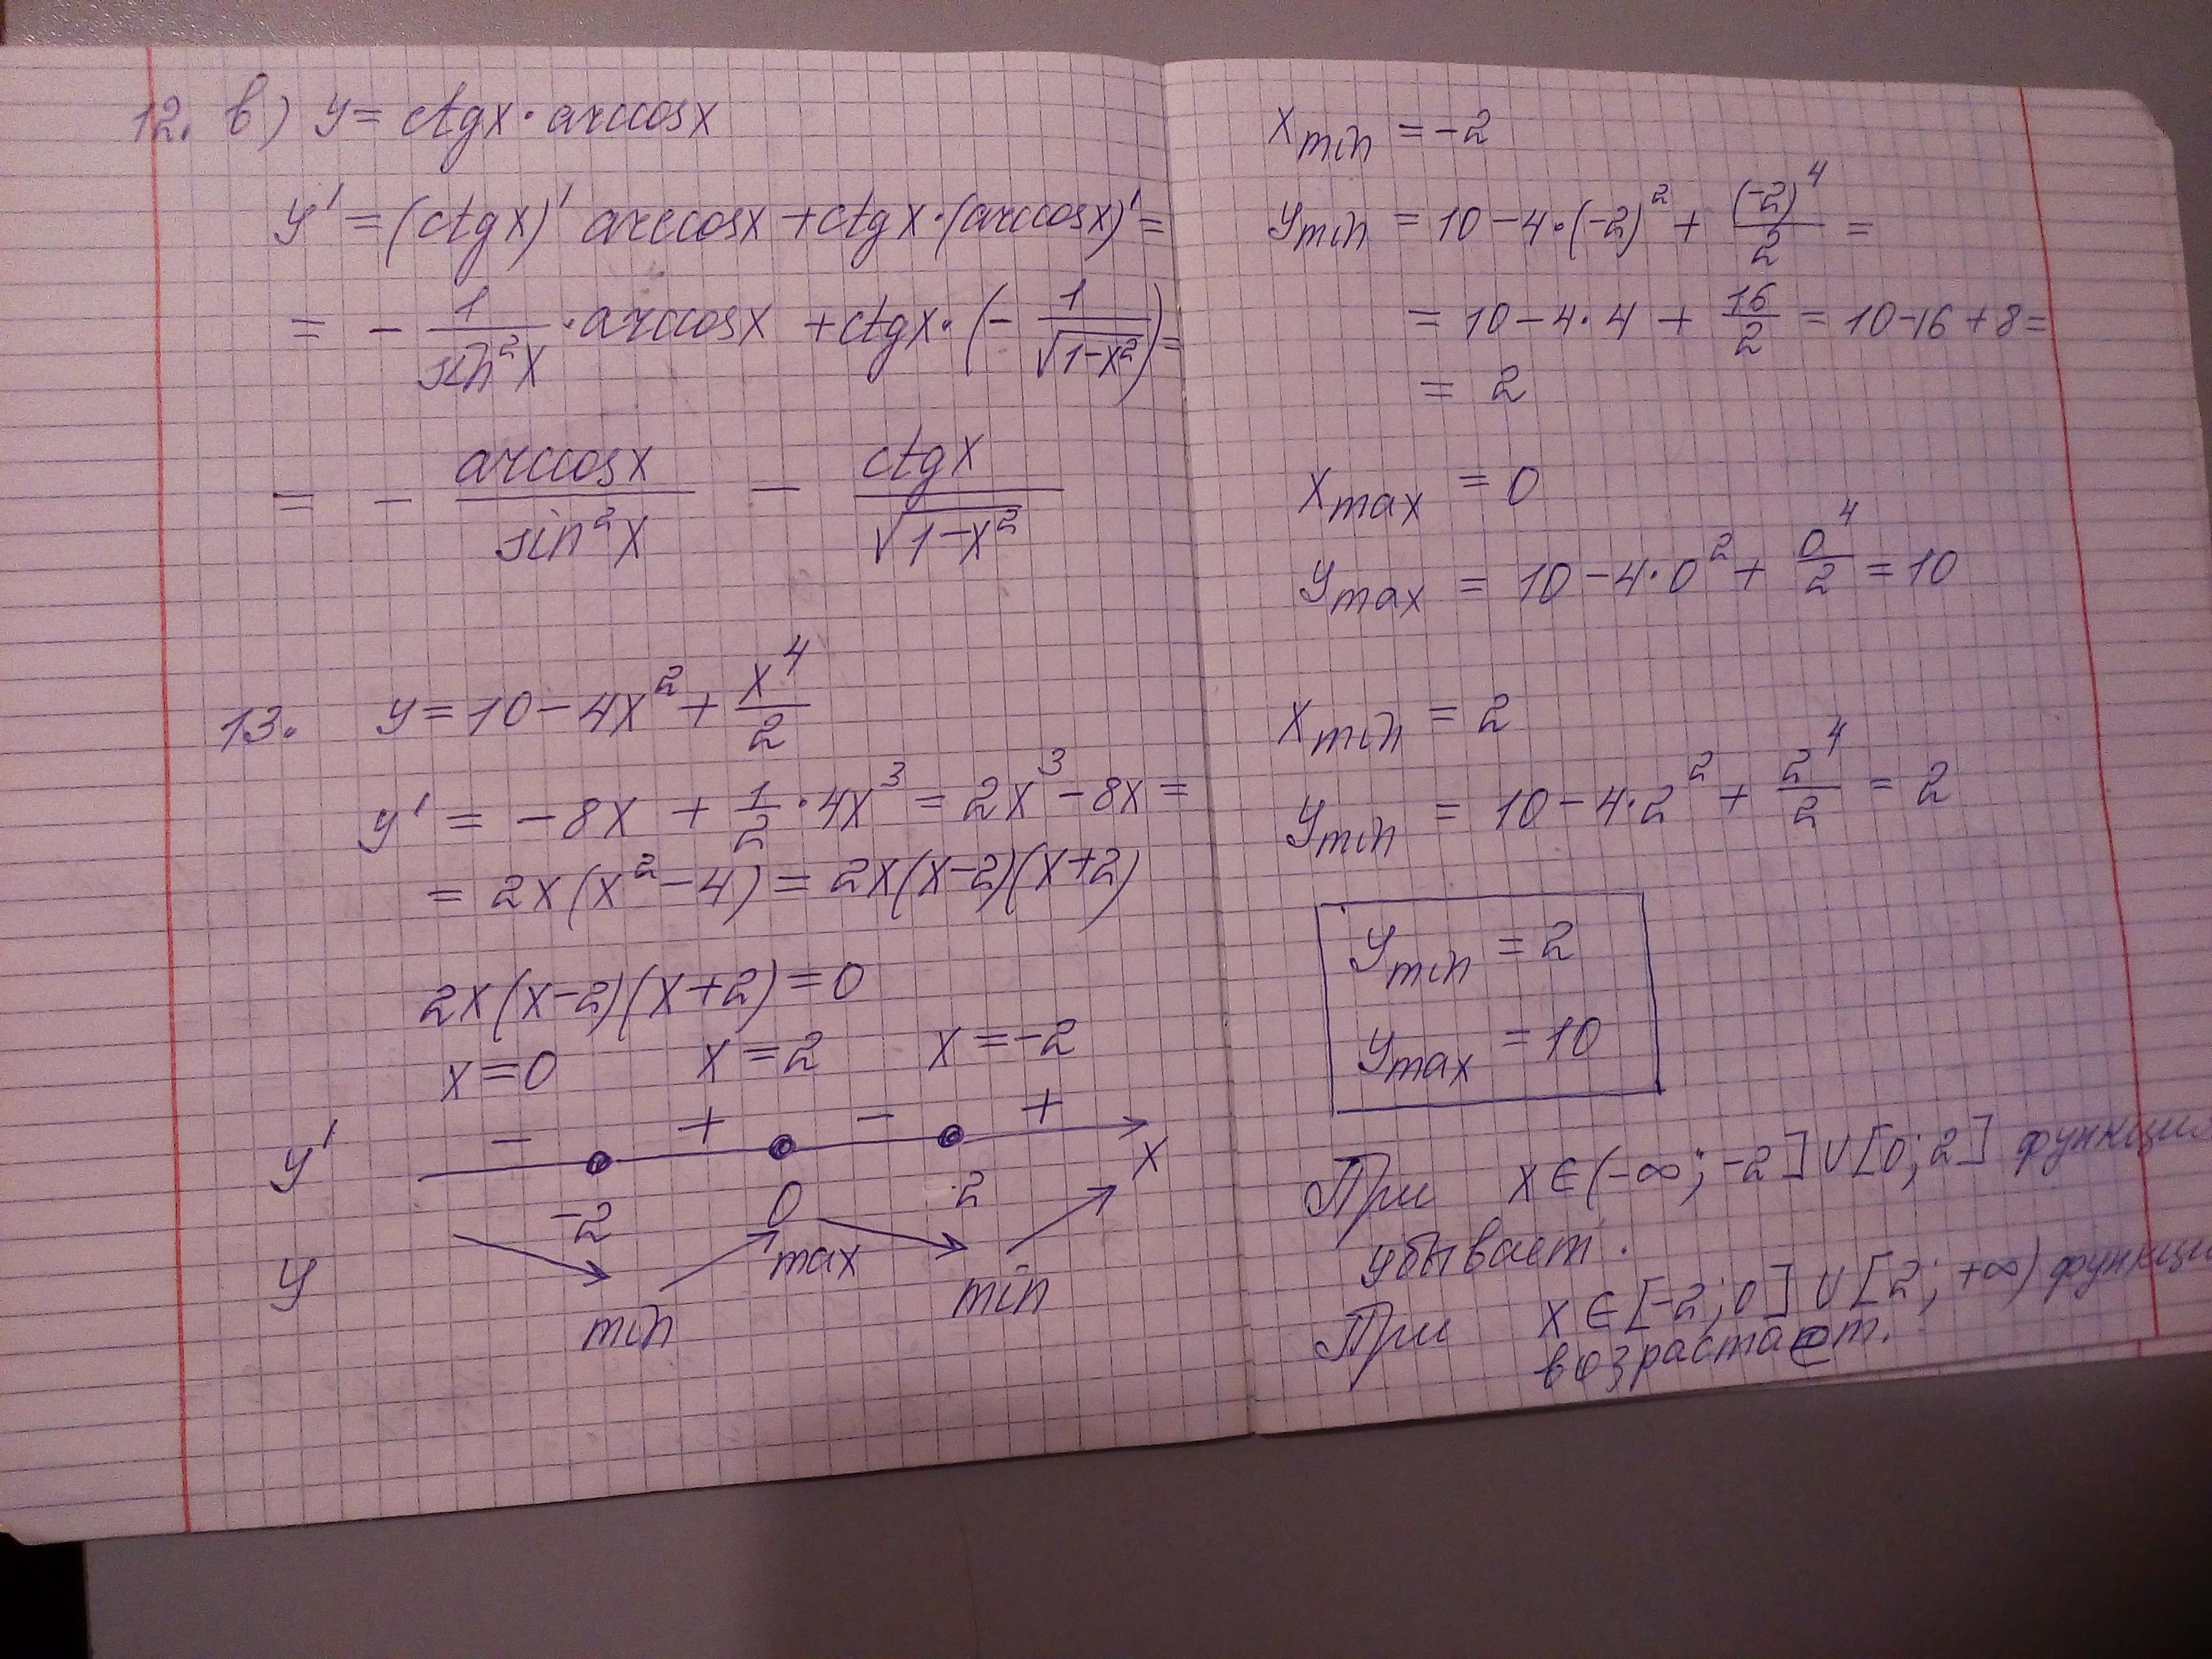 12. в) y = ctgx · arccosx
y' = (ctgx)' arccosx + ctgx · (arccosx)' =
= - 1/sin²x · arccosx + ctgx · (- 1/√(1-x²)) =
= - arccosx/sin²x - ctgx/√(1-x²)
13. y = 10 - 4x² + x⁴/2
y' = -8x + 1/2 · 4x³ = 2x³ - 8x =
= 2x(x² - 4) = 2x(x-2)(x+2)
2x(x-2)(x+2) = 0
x = 0 x = 2 x = -2
y' - + - + x
-2 0 2
y min max min
x min = -2
y min = 10 - 4·(-2)² + (-2)⁴/2 =
= 10 - 4·4 + 16/2 = 10 - 16 + 8 =
= 2
x max = 0
y max = 10 - 4·0² + 0⁴/2 = 10
x min = 2
y min = 10 - 4·2² + 2⁴/2 = 2
y min = 2
y max = 10
При x ∈ (-∞; -2] ∪ [0; 2] функция
убывает.
При x ∈ [-2; 0] ∪ [2; +∞) функци
возрастает.